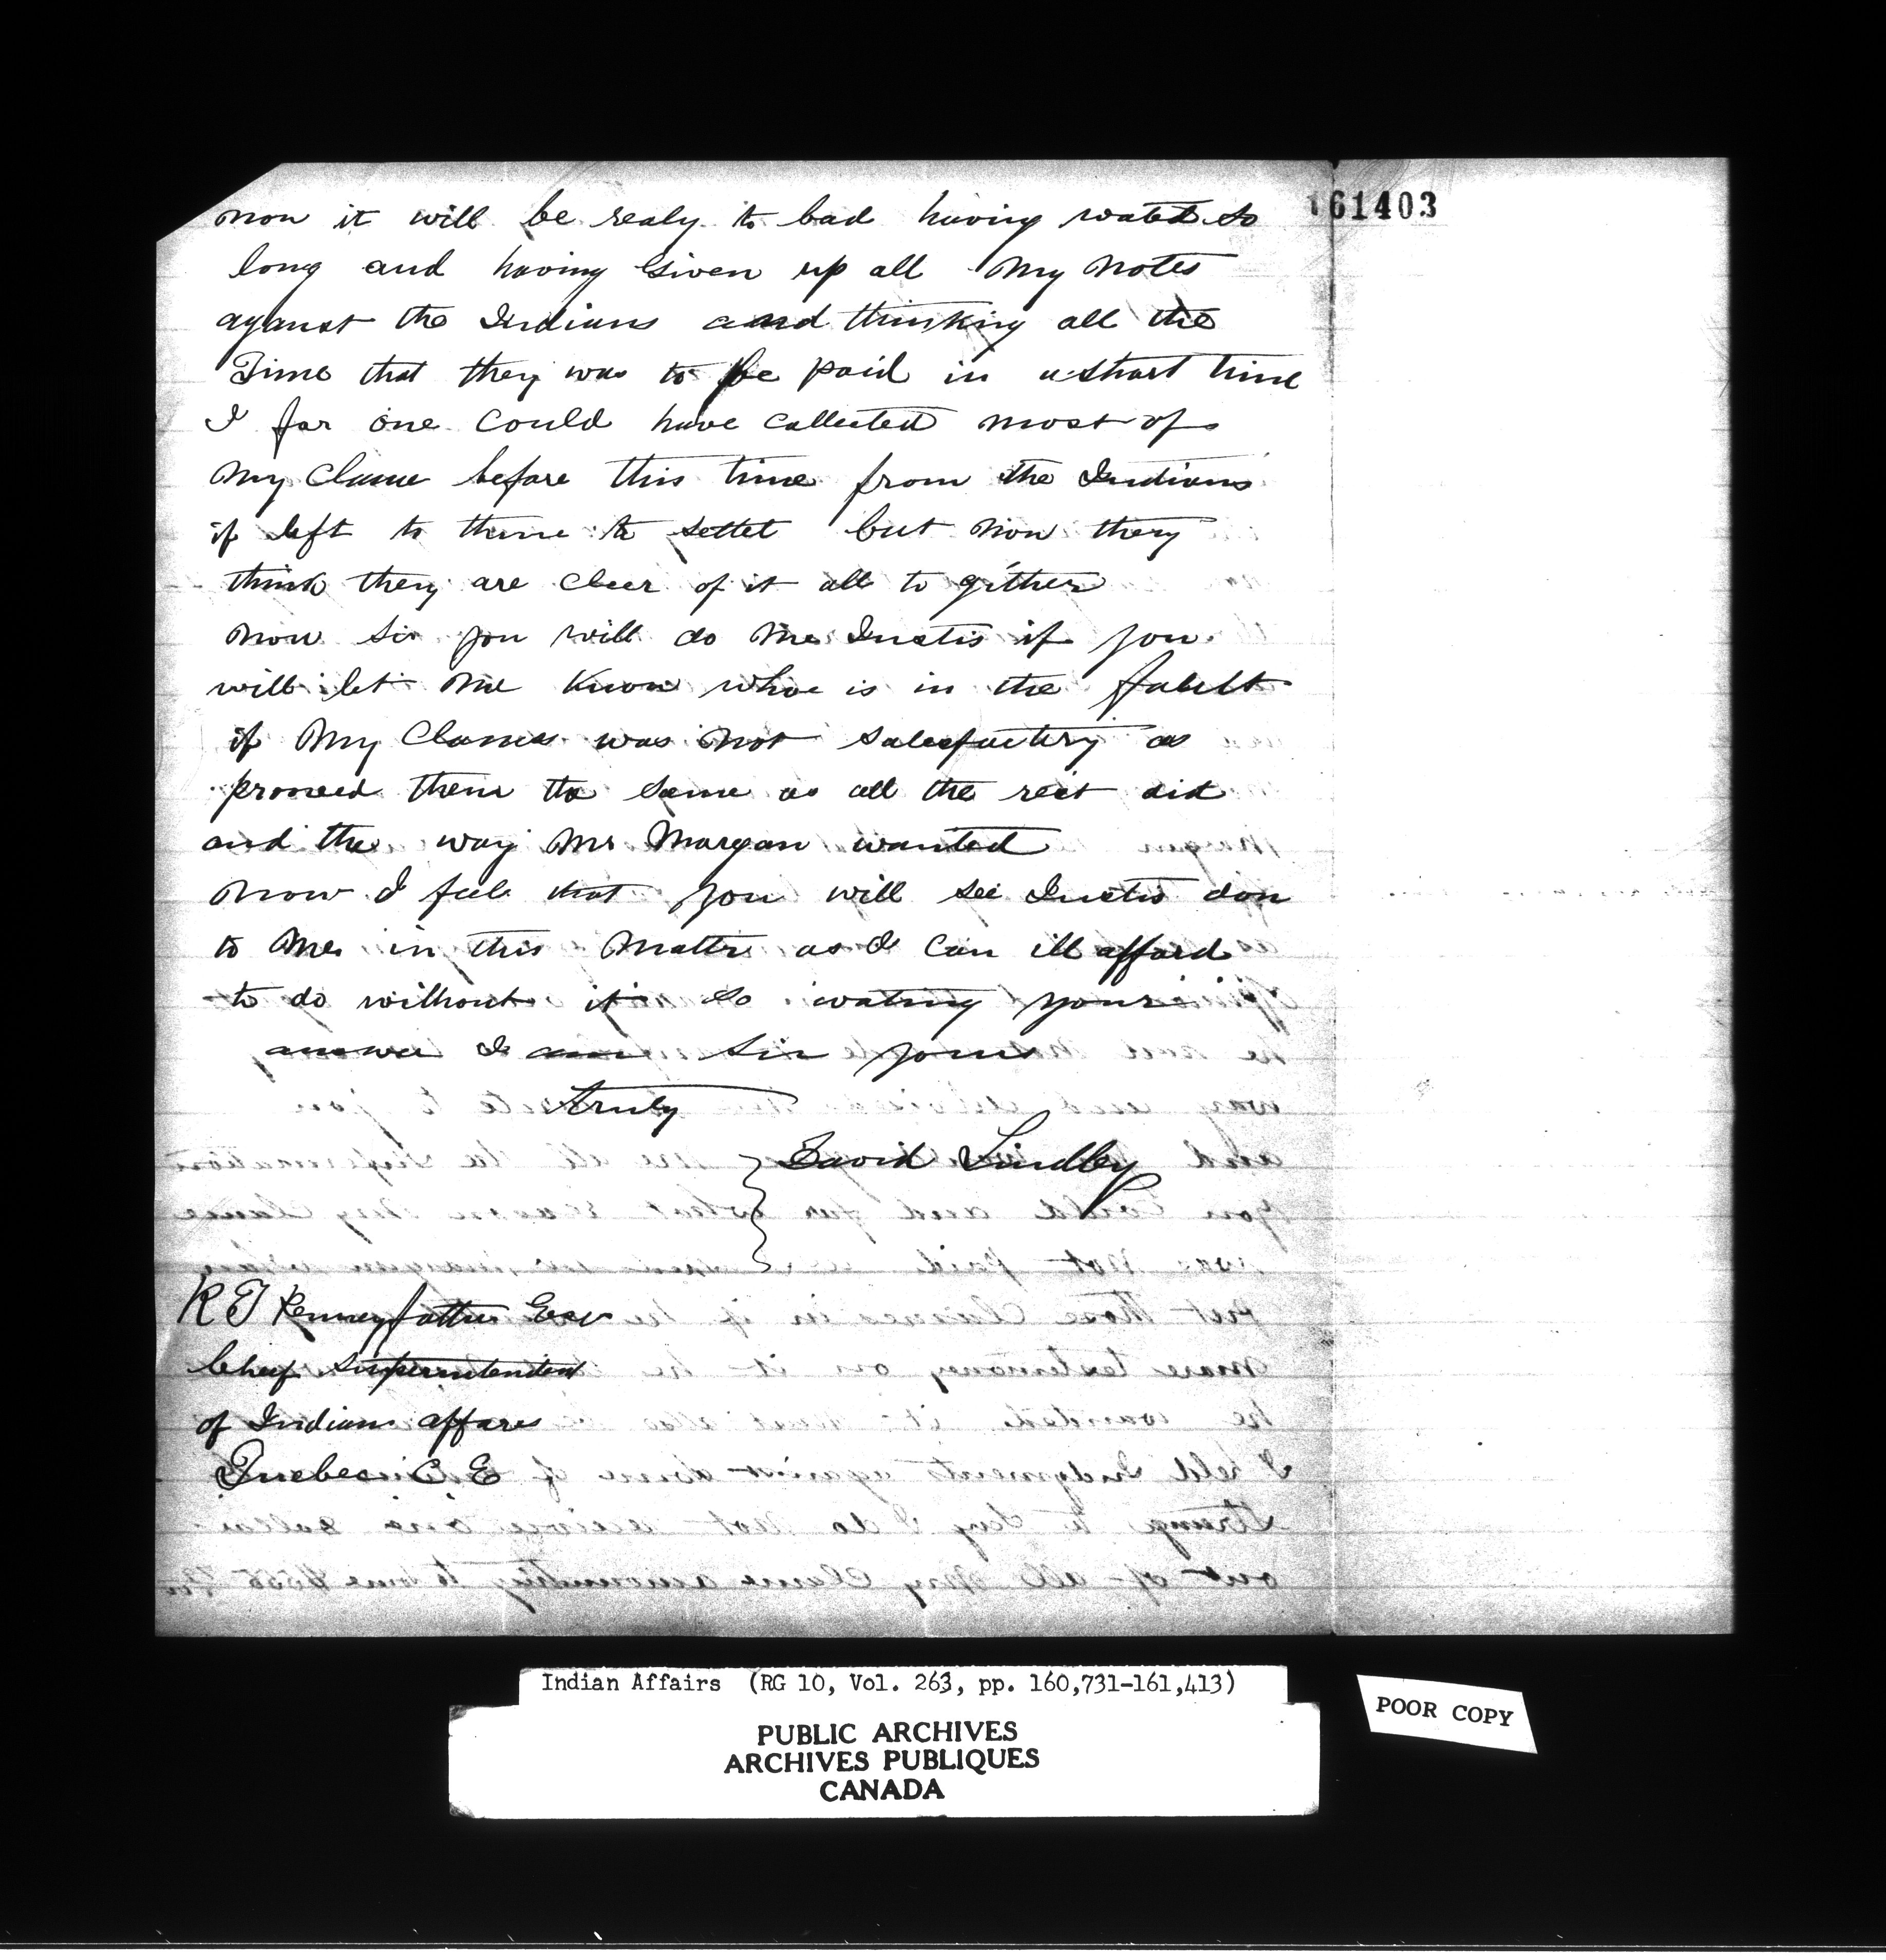 161403
now it will be realy to bad having wated so
long and having Given up all My Notes
aganst the Indians and thinking all the
Time that they was to be paid in a short time
I for one Could have Collected most of
My Clame before this time from the Indians
if left to theme to settel but now they
think they are Cleer of it all to gither
now Sir you will do me Justis if you
will let me Know whoe is in the falelt
if My Clames was Not satesfactory as
proved them the same as all the rest did
and the way Mr Morgan wanted
Now I feel that you will see Justis don
to Me in this Matter as I Can ill afford
to do without it So wating your
answer I am Sir yours
Truly
David Lindley
R T Penneyfather Esqr
Cheif Superintendent
of Indian affares
Quebec C. E
Indian Affairs (RG 10, Vol. 263, pp. 160,731-161,413)
PUBLIC ARCHIVES
ARCHIVES PUBLIQUES
CANADA
POOR COPY